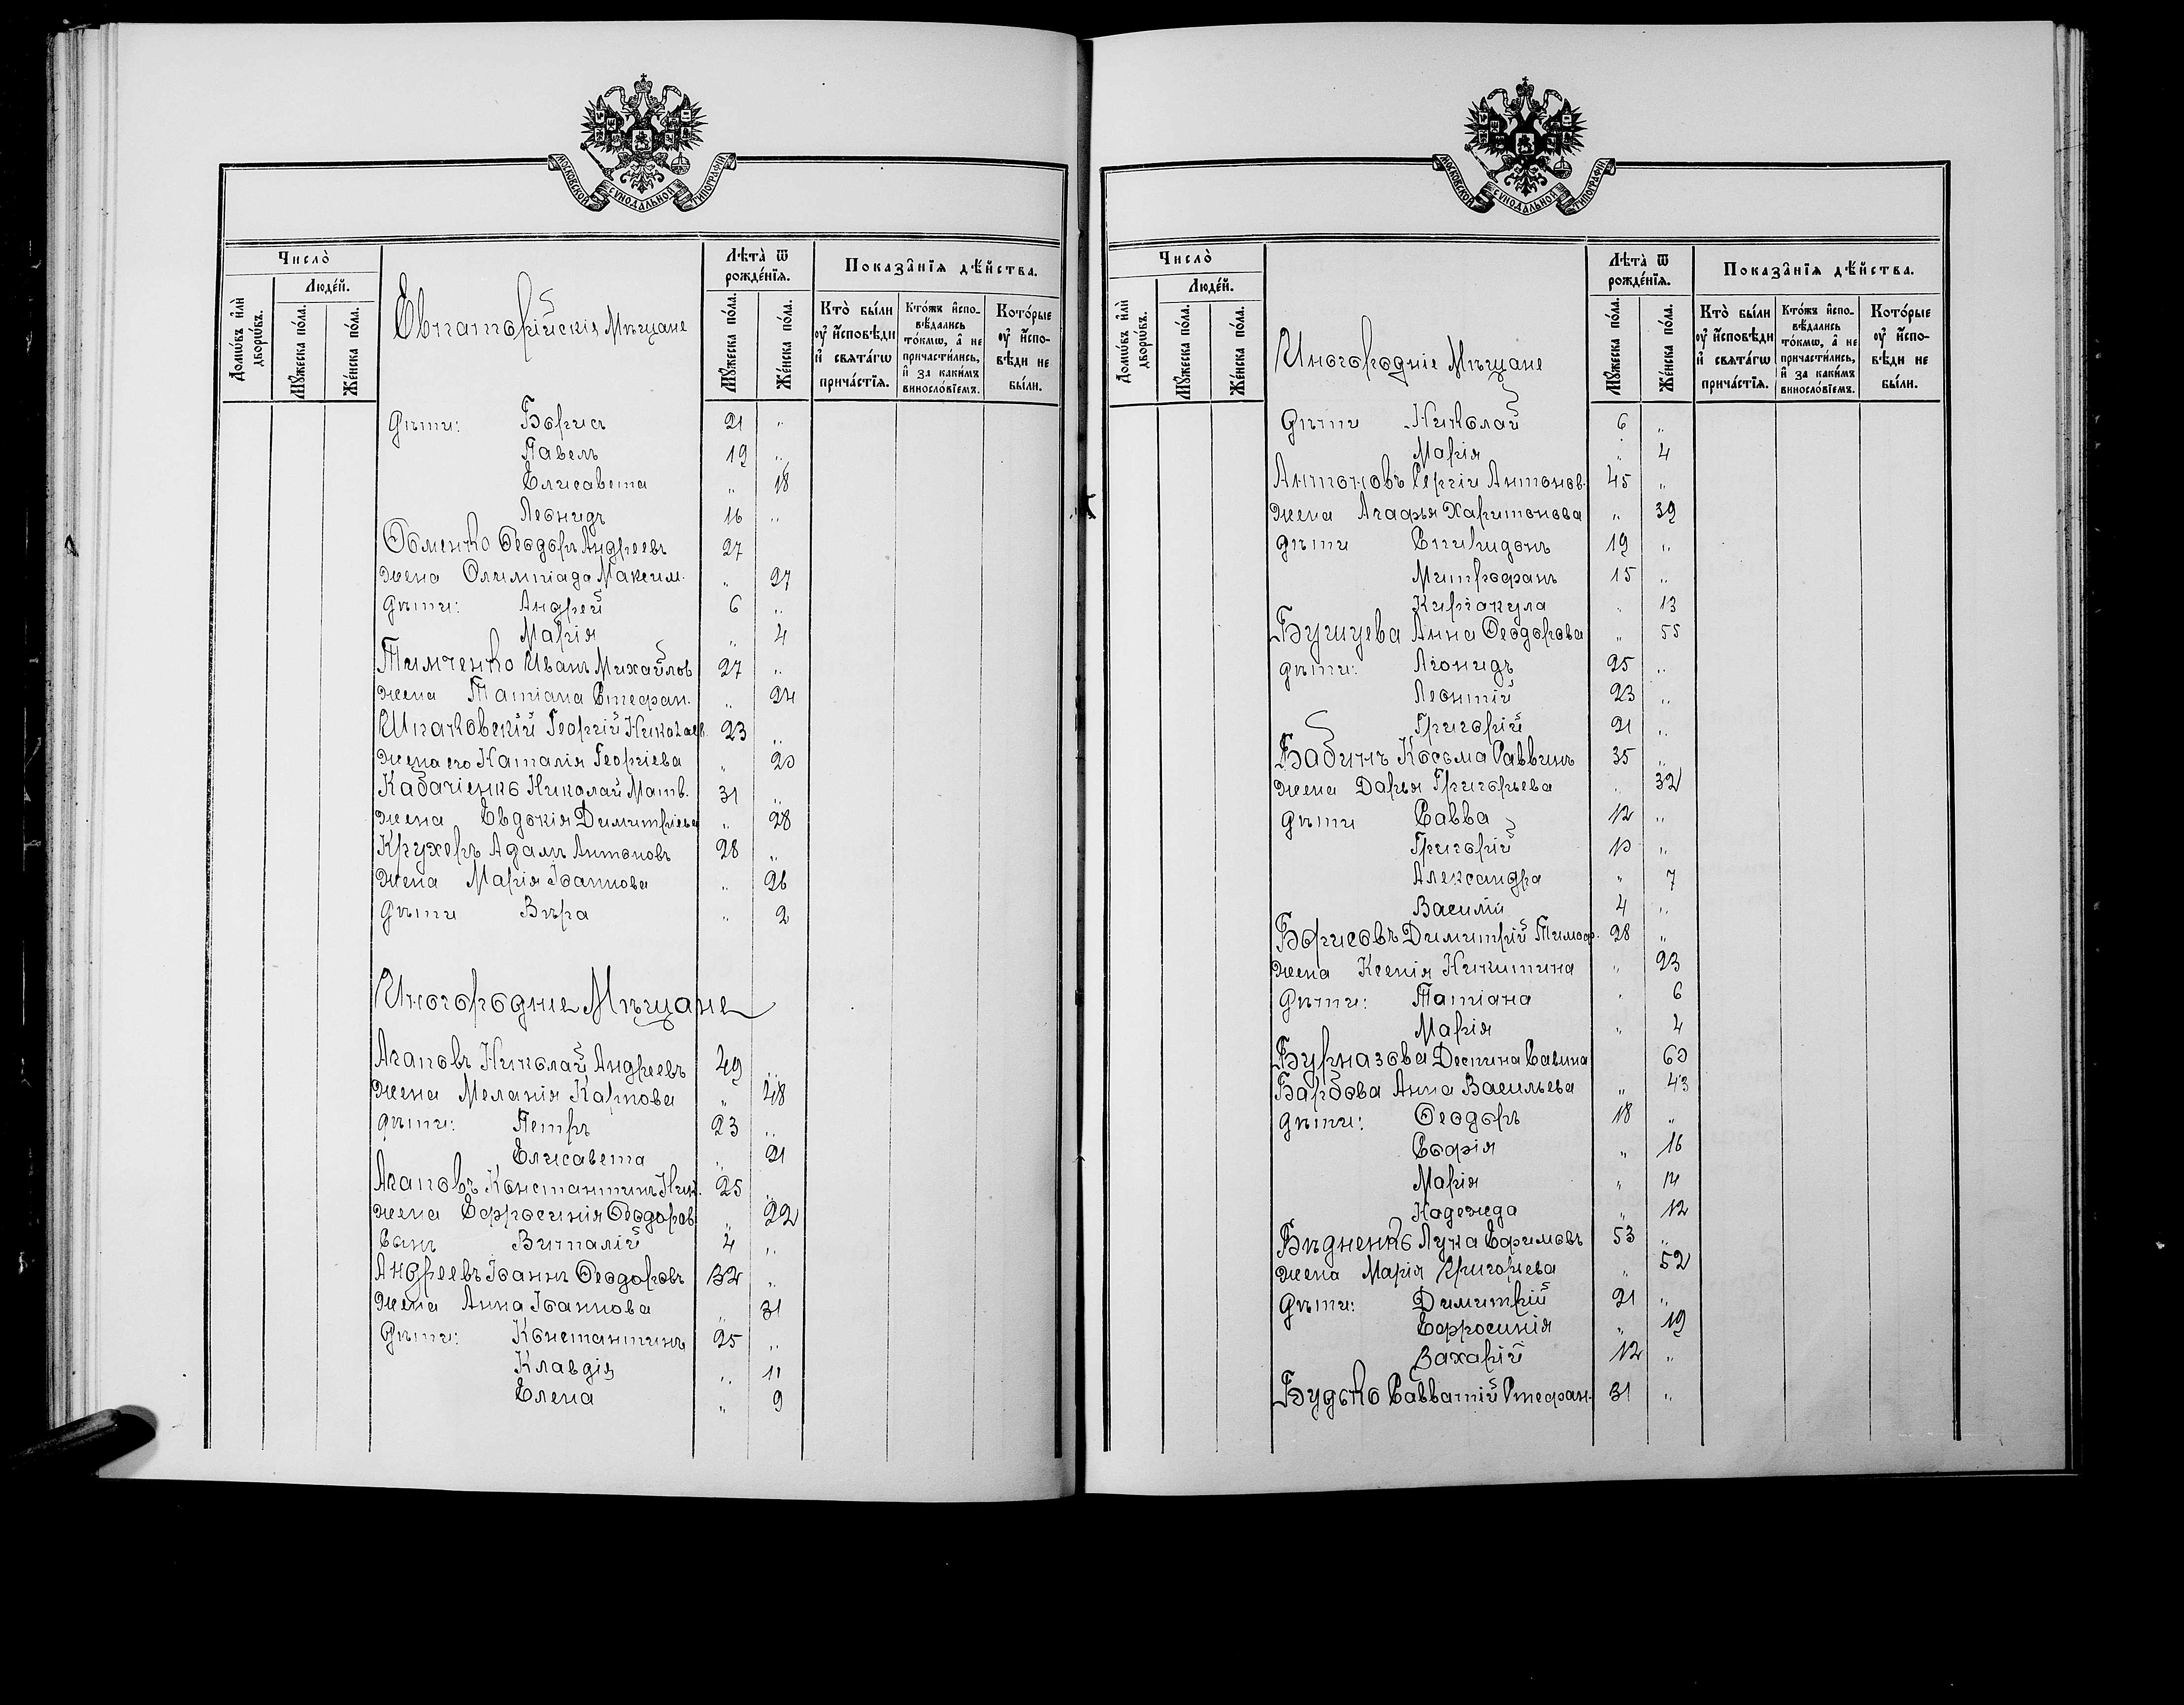 МОСКОВСКОЙ СѴНОДАЛЬНОЙ ТИПОГРАФІИ
Число̀
Людéй.
Домѡ́въ и҆лѝ дворѡ́въ.
Мꙋ́жеска по́ла.
Же́нска по́ла.
Евпаторійскія Мѣщане
Лѣ́та ѿ рожде́нїѧ.
Мꙋ́жеска по́ла.
Же́нска по́ла.
Показа̑нїѧ дѣ́йства.
Кто̀ бы́ли оу҆ и҆́сповѣди и҆ свѧта́гѡ прича́стїѧ.
Кто́жъ и҆спо-вѣ́дались то́кмѡ, а҆ не причасти́лись, и҆ за каки́мъ винослові́емъ.
Кото́рые оу҆ и҆́спо-вѣди не бы́ли.
дѣти: Борисъ 21 "
Павелъ 19 "
Елисавета " 18
Леонидъ 16 "
Ѳоменко Ѳеодоръ Андреевъ 27
жена Олимпіада Максим. " 27
дѣти: Андрей 6 "
Марія " 4
Тимченко Иванъ Михайлов 27 "
жена Татіана Стефан. " 24
Шпаковскій Георгій Николаев. 23 "
жена его Наталія Георгіева " 20
Кабачіенко Николай Матв. 31 "
жена Евдокія Димитріева " 28
Кружеръ Адамъ Антоновъ 28 "
жена Марія Іоаннова " 26
дѣти Вѣра " 2
Иногородние Мѣщане
Агаповъ Николай Андреевъ 49 "
жена Меланія Карпова " 48
дѣти: Петръ 23 "
Елисавета " 21
Агаповъ Константинъ Ник. 25 "
жена Ефросинія Ѳеодоров " 22
Сынъ Виталій 4 "
Андреевъ Іоаннъ Ѳеодоровъ 32 "
жена Анна Іоаннова " 31
дѣти: Константинъ 25 "
Клавдія " 11
Елена " 9
МОСКОВСКОЙ СѴНОДАЛЬНОЙ ТИПОГРАФІИ
Число̀
Людéй.
Домѡ́въ и҆лѝ дворѡ́въ.
Мꙋ́жеска по́ла.
Же́нска по́ла.
Иногородніе Мѣщане
Лѣ́та ѿ рожде́нїѧ.
Мꙋ́жеска по́ла.
Же́нска по́ла.
Показа̑нїѧ дѣ́йства.
Кто̀ бы́ли оу҆ и҆́сповѣди и҆ свѧта́гѡ прича́стїѧ.
Кто́жъ и҆спо-вѣ́дались то́кмѡ, а҆ не причасти́лись, и҆ за каки́мъ винослові́емъ.
Кото́рые оу҆ и҆́спо-вѣди не бы́ли.
дѣти Николай 6 "
Марія " 4
Антоновъ Сергій Антонов. 45 "
жена Агафья Харитонова " 39
дѣти Спиридонъ 19 "
Митрофанъ 15 "
Киріакула " 13
Бушуева Анна Ѳеодорова " 55
дѣти: Леонидъ 25 "
Леонтій 23 "
Григорій 21 "
Бабинъ Косьма Саввинъ 35 "
жена Дарья Григорьева " 32
дѣти Савва 12 "
Григорій 10 "
Александра " 7
Василій 4 "
Борисовъ Димитрій Тимоф. 28 "
жена Ксенія Никитина " 23
дѣти: Татіана " 6
Марія " 4
Бурназова Деспина Савина 60
Барбова Анна Васильева " 43
дѣти: Ѳеодоръ 18 "
Софія " 16
Марія " 14
Надежда " 12
Бѣдненко Лука Ефимовъ 53 "
жена Марія Григорьева " 52
дѣти: Димитрій 21 "
Ефросинія " 19
Захарій 12 "
Будько Савватій Стефан. 31 "